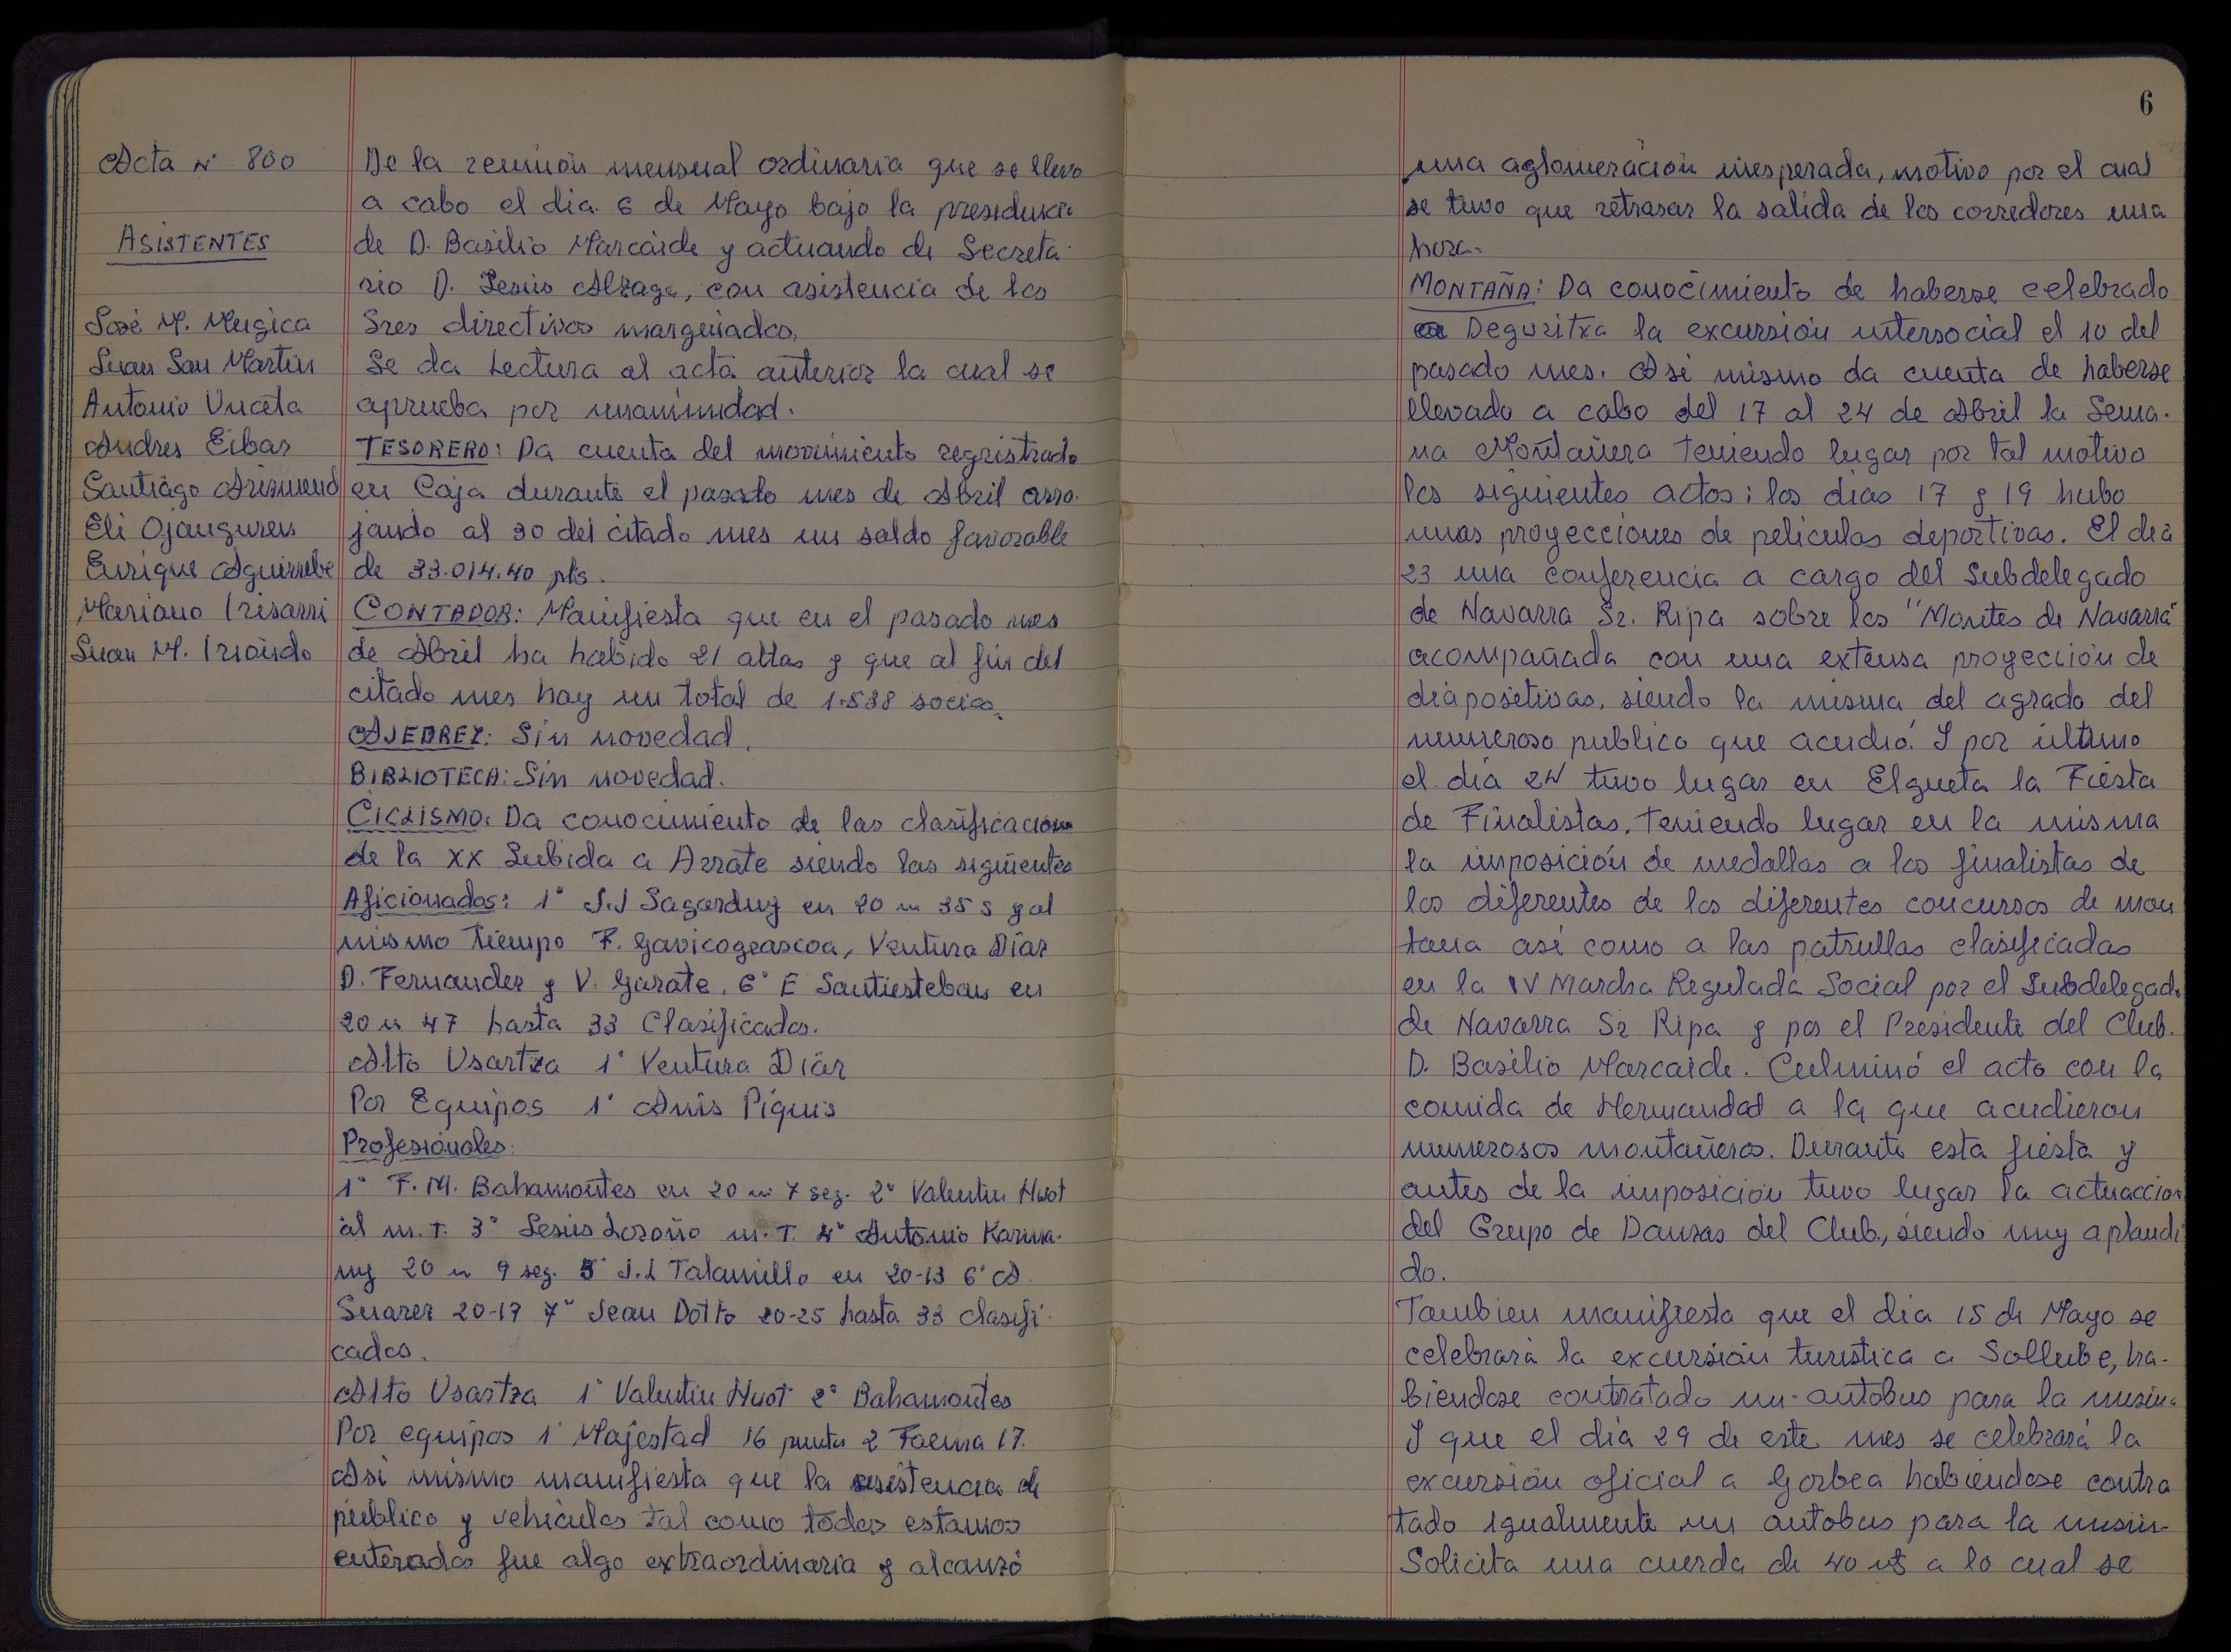 Acta Nº 800
ASISTENTES
José M. Mugica
Juan San Martin
Antonio Unceta
Andres Eibar
Santiago Arizmend
Eli Ojanguren
Enrique Aguirrebe
Mariano Irisarri
Juan M. Iriondo
De la reunión mensual ordinaria que se llevo
a cabo el dia 6 de Mayo bajo la presidencia
de D. Basilio Marcaide y actuando de Secreta-
rio D. Jesús Alzaga, con asistencia de los
Sres directivos marginados.
Se da Lectura al acta anterior la cual se
aprueba por unanimidad.
TESORERO: Da cuenta del movimiento regristrado
en Caja durante el pasado mes de Abril arro-
jando al 30 del citado mes un saldo favorable
de 33.014.40 pts.
CONTADOR: Manifiesta que en el pasado mes
de Abril ha habido 21 altas y que al fin del
citado mes hay un total de 1.538 socios.
AJEDREZ: Sin novedad.
BIBLIOTECA: Sin novedad.
CICLISMO: Da conocimiento de las clasificaciones
de la XX Subida a Arrate siendo las siguientes
Aficionados: 1º J.J Sagarduy en 20 m 35 s y al
mismo tiempo F. Gavicogeascoa, Ventura Díaz
D. Fernandez y V. Garate. 6º E Santiesteban en
20 m 47 hasta 33 Clasificados.
Alto Usartza 1º Ventura Díaz
Por Equipos 1º Anis Piquis
Profesionales:
1º F.M. Bahamontes en 20 m 7 seg. 2º Valentin Huot
al m.T. 3º Jesús Loroño m.T. 4º Antonio Karma-
ny 20 m 9 seg. 5º J.L Talamillo en 20-13 6º A
Suarez 20-17 7º Jean Dotto 20-25 hasta 33 clasifi-
cados.
Alto Usartza 1º Valentin Huot 2º Bahamontes
Por equipos 1º Majestad 16 puntos 2 Faema 17.
Asi mismo manifiesta que la asistencia de
público y vehiculos tal como todos estamos
enterados fue algo extraordinaria y alcanzó
6
una aglomeración inesperada, motivo por el cual
se tuvo que retrasar la salida de los corredores una
hora.
MONTAÑA: Da conocimiento de haberse celebrado
en Deguritxa la excursión intersocial el 10 del
pasado mes. Asi mismo da cuenta de haberse
llevado a cabo del 17 al 24 de Abril la Sema-
na Montañera teniendo lugar por tal motivo
los siguientes actos: los dias 17 y 19 hubo
unas proyecciones de peliculas deportivas. El dia
23 una conferencia a cargo del Subdelegado
de Navarra Sr. Ripa sobre los "Montes de Navarra"
acompañada con una extensa proyección de
diapositivas, siendo la misma del agrado del
numeroso publico que acudió. Y por ultimo
el dia 24 tuvo lugar en Elgueta la Fiesta
de Finalistas, teniendo lugar en la misma
la imposición de medallas a los finalistas de
los diferentes de los diferentes concursos de mon
taña así como a las patrullas clasificadas
en la IV Marcha Regulada Social por el Subdelegado
de Navarra Sr Ripa y por el Presidente del Club.
D. Basilio Marcaide. Culminó el acto con la
comida de Hermandad a la que acudieron
numerosos montañeros. Durante esta fiesta y
antes de la imposicion tuvo lugar la actuaccion
del Grupo de Danzas del Club, siendo muy aplaudi
do.
Tambien manifiesta que el dia 15 de Mayo se
celebrará la excursión turistica a Sollube, ha-
biendose contratado un autobus para la misma
Y que el día 29 de este mes se celebrará la
excursión oficial a Gorbea habiendose contra
tado igualmente un autobus para la misma
Solicita una cuerda de 40 mts a lo cual se